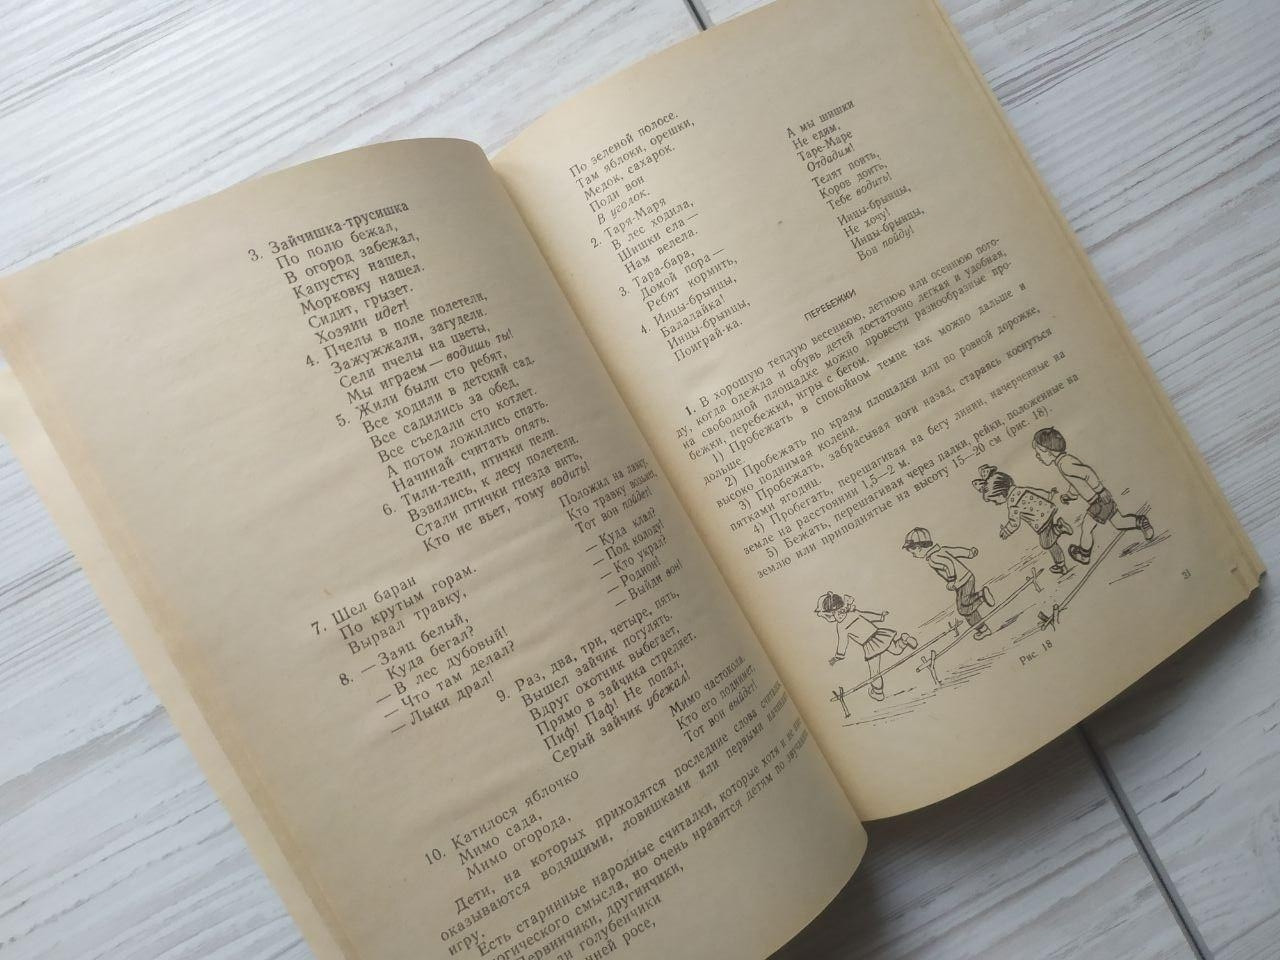 3. Зайчишка-трусишка
По полю бежал,
В огород забежал,
Капустку нашел,
Морковку нашел.
Сидит, грызет.
Хозяин идет!
4. Пчелы в поле полетели,
Зажужжали, загудели.
Сели пчелы на цветы,
Мы играем — водишь ты!
5. Жили были сто ребят,
Все ходили в детский сад.
Все садились за обед,
Все съедали сто котлет.
А потом ложились спать.
Начинай считать опять.
6. Тили-тели, птички пели.
Взвились, к лесу полетели.
Стали птички гнезда вить,
Кто не вьет, тому водить!
7. Шел баран
По крутым горам.
Вырвал травку,
Положил на лавку.
Кто травку возьмет,
Тот вон пойдет!
8. — Заяц белый,
— Куда бегал?
— В лес дубовый!
— Что там делал?
— Лыки драл!
— Куда клал?
— Под колоду!
— Кто украл?
— Родион!
— Выйди вон!
9. Раз, два, три, четыре, пять,
Вышел зайчик погулять.
Вдруг охотник выбегает,
Прямо в зайчика стреляет.
Пиф! Паф! Не попал,
Серый зайчик убежал!
10. Катилося яблочко
Мимо сада,
Мимо огорода,
Мимо частокола.
Кто его поднимет,
Тот вон выйдет!
Дети, на которых приходятся последние слова
оказываются водящими, ловишками или первыми
игру.
Есть старинные народные считалки, которые хотя и не
смысла, но очень нравятся детям по
Первинчики, другинчики,
голубенчики
росе,
По зеленой полосе.
Там яблоки, орешки,
Медок, сахарок.
Поди вон
В уголок.
2. Таря-Маря
В лес ходила,
Шишки ела —
Нам велела.
А мы шишки
Не едим,
Таре-Маре
Отдадим!
3. Тара-бара,
Домой пора —
Ребят кормить,
Телят поить,
Коров доить,
Тебе водить!
4. Инцы-брынцы,
Балалайка!
Инцы-брынцы,
Поиграй-ка.
Инцы-брынцы,
Не хочу!
Инцы-брынцы,
Вон пойду!
ПЕРЕБЕЖКИ
1. В хорошую теплую весеннюю, летнюю или осеннюю пого-
ду, когда одежда и обувь детей достаточно легкая и удобная,
на свободной площадке можно провести разнообразные про-
бежки, перебежки, игры с бегом.
1) Пробежать в спокойном темпе как можно дальше и
дольше.
2) Пробежать по краям площадки или по ровной дорожке,
высоко поднимая колени.
3) Пробежать, забрасывая ноги назад, стараясь коснуться
пятками ягодиц.
4) Пробегать, перешагивая на бегу линии, начерченные на
земле на расстоянии 1,5—2 м.
5) Бежать, перешагивая через палки, рейки, положенные на
землю или приподнятые на высоту 15—20 см (рис. 18).
Рис. 18
21